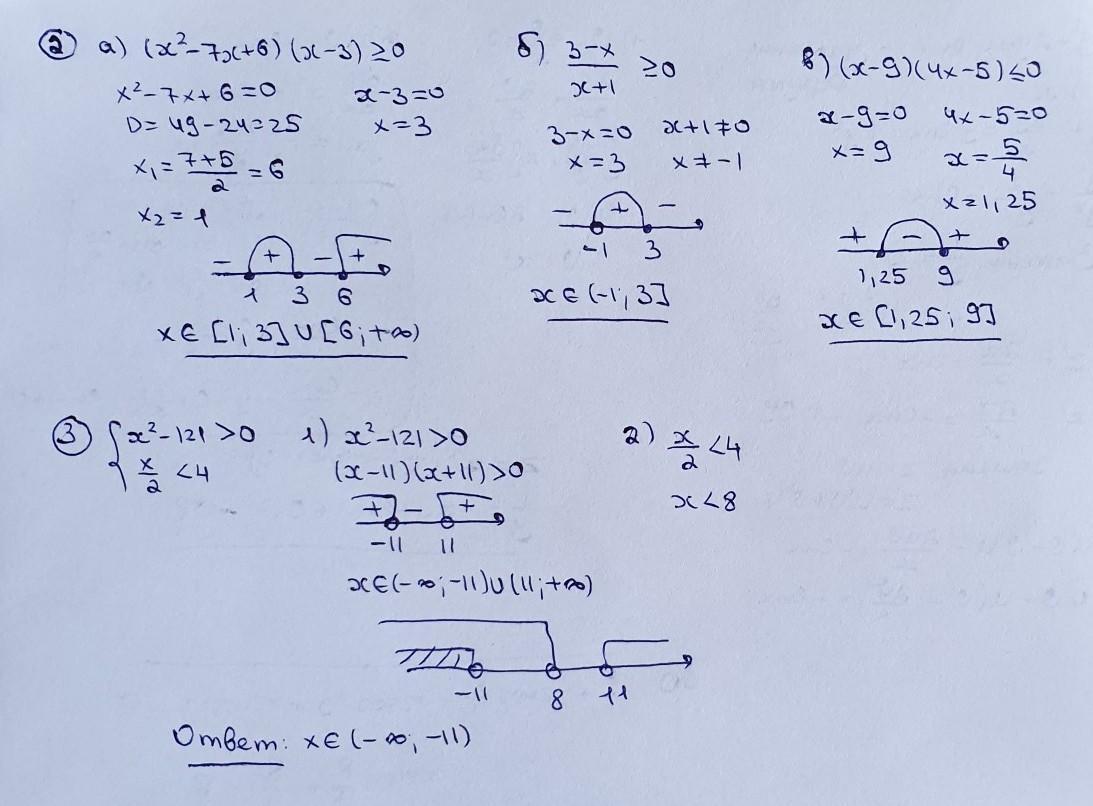 ② а) (x²-7x+6)(x-3)≥0
x²-7x+6=0 x-3=0
D=49-24=25 x=3
x₁=(7+5)/2=6
x₂=1
- + - +
1 3 6
x∈[1;3]∪[6;+∞)
б) (3-x)/(x+1) ≥0
3-x=0 x+1≠0
x=3 x≠-1
- + -
-1 3
x∈(-1;3]
в) (x-9)(4x-5)≤0
x-9=0 4x-5=0
x=9 x=5/4
x=1,25
+ - +
1,25 9
x∈[1,25;9]
③ { x²-121>0
x/2 <4
1) x²-121>0
(x-11)(x+11)>0
+ - +
-11 11
x∈(-∞;-11)∪(11;+∞)
2) x/2 <4
x<8
-11 8 11
Ответ: x∈(-∞;-11)